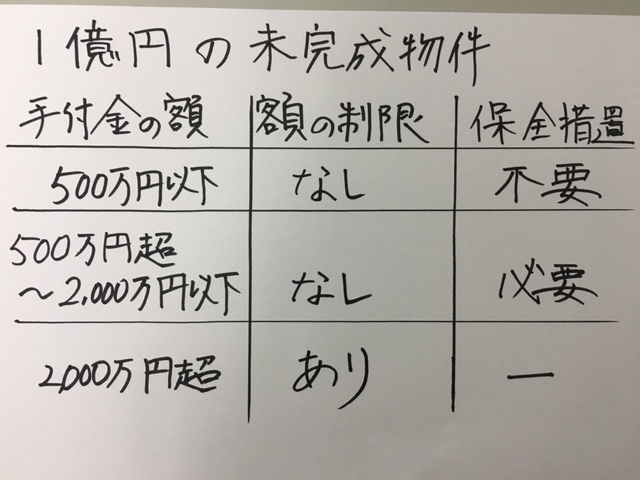 1億円の未完成物件
手付金の額 額の制限 保全措置
500万円以下 なし 不要
500万円超
～2,000万円以下 なし 必要
2,000万円超 あり ー